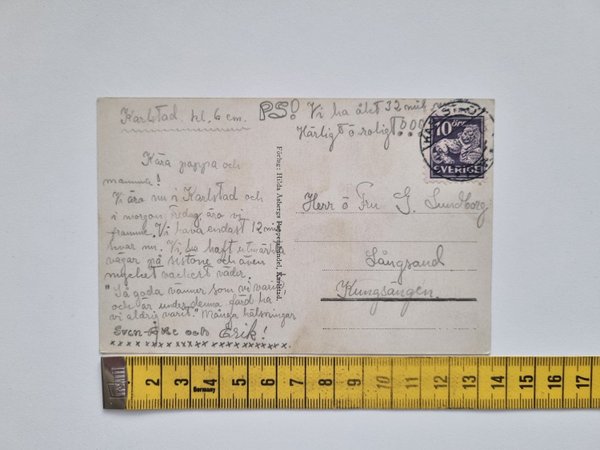 Karlstad. kl. 6 em.
PS! Vi ha åkt 32 mil
Härligt o roligt
Kära pappa och
mamma!
Vi äro nu i Karlstad och
i morgon redan äro vi
framme. Vi hava endast 12 mil
kvar nu. Vi ha haft utmärkta
vägar på sistone och även
mycket vackert väder.
"Så goda vänner som vi varit
och är under denna färd ha
vi aldrig varit." Många hälsningar
Sven-Åke och Erik!
Förlag: Hilda Asbergs Pappershandel, Karlstad.
10 ÖRE
SVERIGE
Herr o Fru G. Lundborg
Långsand
Kungsängen.
1 2 3 4 5 6 7 8 9 10 11 12 13 14 15 16 17
Germany